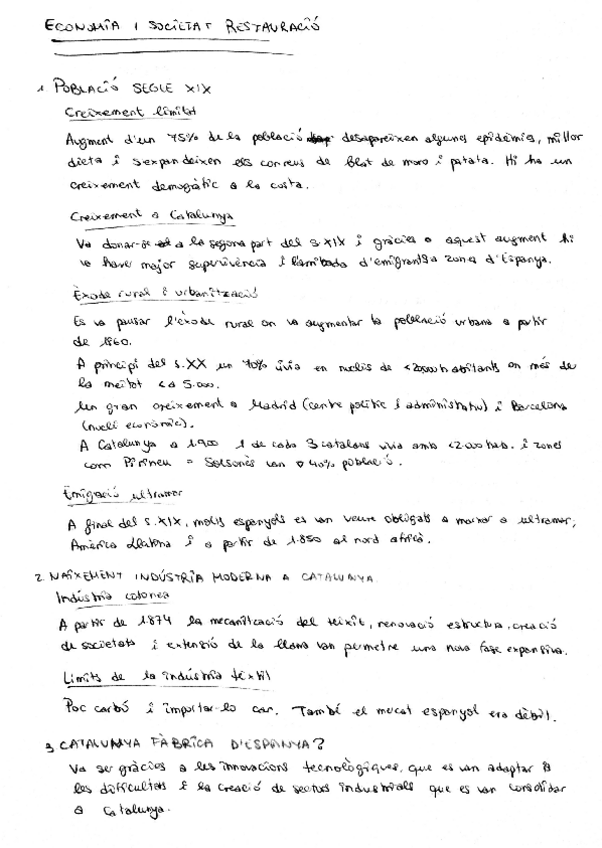 ECONOMIA I SOCIETAT RESTAURACIÓ
1 POBLACIÓ SEGLE XIX
Creixement limitat
Augment d'un 75% de la població desapareixen algunes epidèmies, millor
dieta i s'expandeixen els correus de blat de moro i patata. Hi ha un
creixement demogràfic a la costa.
Creixement a Catalunya
Va donar-se a la segona part del s.XIX i gràcies a aquest augment hi
va haver major supervivència i l'arribada d'emigrants a zones d'Espanya.
Èxode rural i urbanització
Es va pausar l'èxode rural on va augmentar la població urbana a partir
de 1860.
A principi del s.XX un 70% vivia en nuclis de <20000 habitants on més de
la meitat <a 5.000.
Un gran creixement a Madrid (centre polític i administratiu) i Barcelona
(nucli econòmic).
A Catalunya a 1.900 1 de cada 3 catalans vivia amb <2.000 hab. i zones
com Pirineu = Solsonès van 40% població.
Emigració ultramar
A final del s.XIX, molts espanyols es van veure obligats a marxar a ultramar,
Amèrica Llatina i a partir de 1.850 al nord africà.
2. NAIXEMENT INDÚSTRIA MODERNA A CATALUNYA
Indústria cotonera
A partir de 1874 la mecanització del teixit, renovació estructura, creació
de societats i extensió de la llana van permetre una nova fase expansiva.
Límits de la indústria tèxtil
Poc carbó i importar-lo car. També el mercat espanyol era dèbil.
3 CATALUNYA FÀBRICA D'ESPANYA?
Va ser gràcies a les innovacions tecnològiques, que es van adaptar a
les dificultats i la creació de sectors industrials que es van consolidar
a Catalunya.